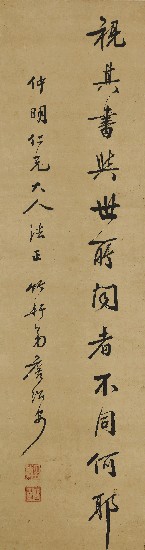 視其書與世所聞者不同何耶
仲明仁兄大人法正